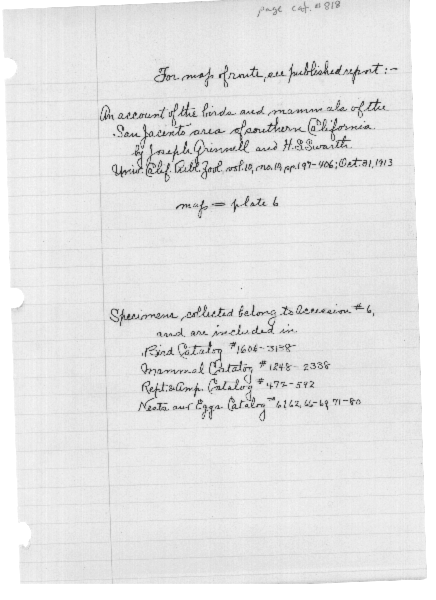 page cat. #818
For map of route, see published report:-
An account of the birds and mammals of the
San Jacinto area of southern California
by Joseph Grinnell and H.S. Swarth.
Univ. Calif. Publ. Zool. vol. 10, no. 10, pp. 197-406; Oct. 31, 1913
map = plate 6
Specimens, collected belong to accession #6,
and are included in
Bird Catalog #1606-3138
Mammal Catalog #1248-2338
Rept. & Amp. Catalog #472-542
Nests and Eggs Catalog 71-80